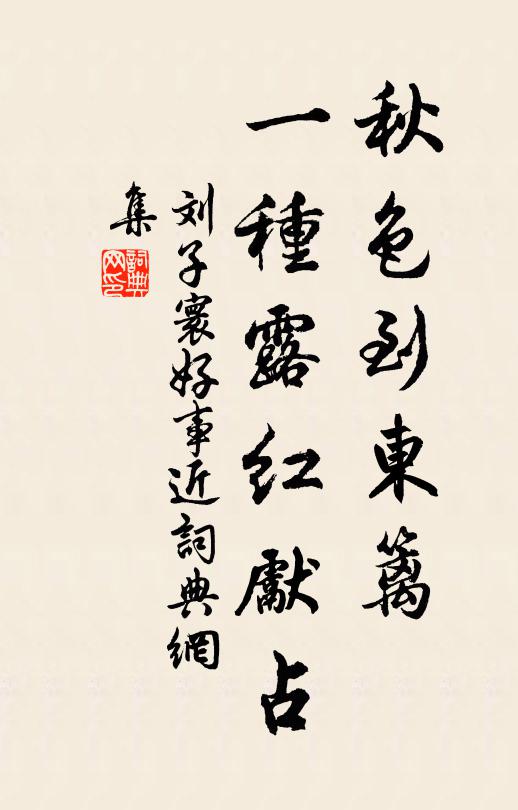 秋色到東籬
一種露紅獻占
刘子寰好事近詞典網
集
詞典
网印